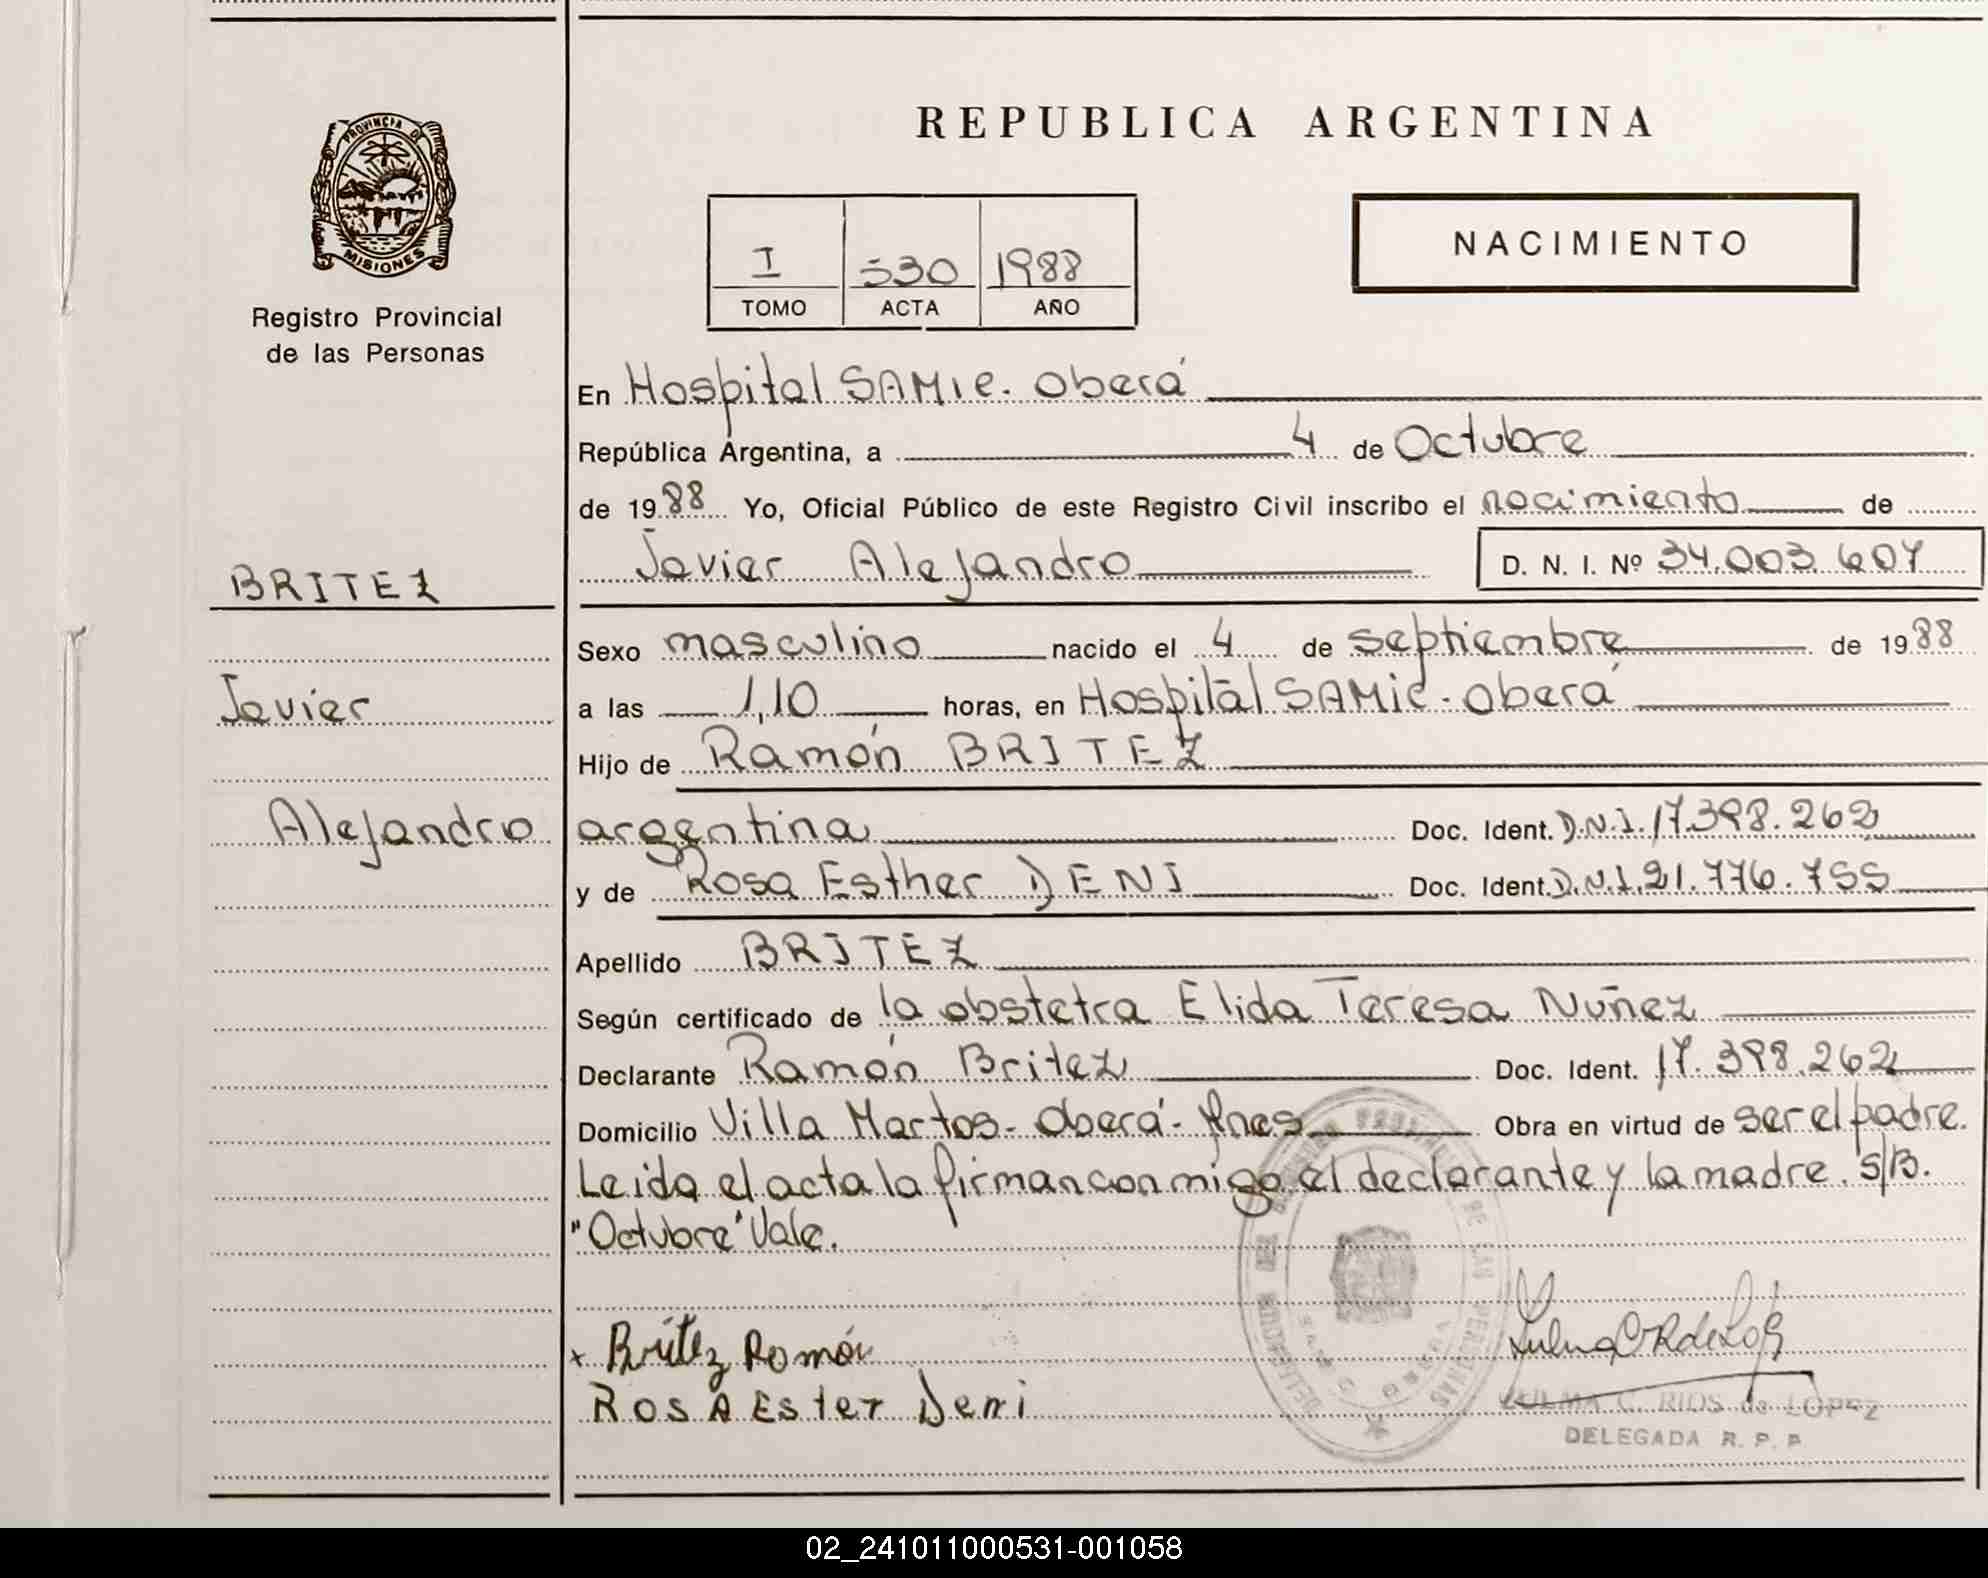 REPUBLICA ARGENTINA
PROVINCIA D
MISIONES
Registro Provincial
de las Personas
I 530 1988
TOMO ACTA AÑO
NACIMIENTO
En Hospital SAMIC. Oberá
República Argentina, a 4 de Octubre
de 1988 Yo, Oficial Público de este Registro Civil inscribo el nacimiento de
Javier Alejandro D. N. I. Nº 34.003.607
BRITEZ
Sexo masculino nacido el 4 de septiembre de 1988
Javier
a las 1,10 horas, en Hospital SAMIC - Oberá
Hijo de Ramón BRITEZ
Alejandro
argentina Doc. Ident. D.N.I. 17.398.262
y de Rosa Esther DENI Doc. Ident. D.N.I. 21.776.755
Apellido BRITEZ
Según certificado de la obstetra Elida Teresa Nuñez
Declarante Ramón Britez Doc. Ident. 17.398.262
Domicilio Villa Martos - Oberá - Mnes Obra en virtud de ser el padre.
Leida el acta la firman conmigo el declarante y la madre. S/B.
"Octubre" Vale.
x Britez Ramón
Rosa Ester Deni
ZULMA C. RIOS de LOPEZ
DELEGADA R. P. P.
02_241011000531-001058